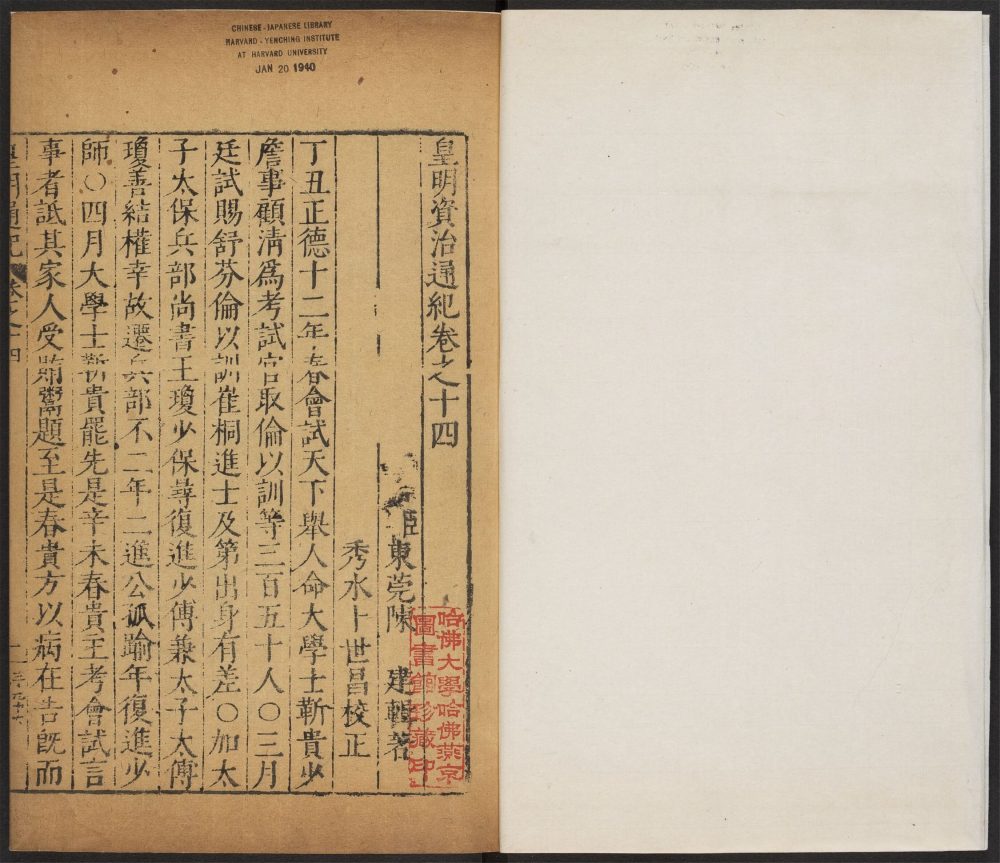 CHINESE-JAPANESE LIBRARY
HARVARD-YENCHING INSTITUTE
AT HARVARD UNIVERSITY
JAN 20 1940
皇明資治通紀卷之十四
臣東莞陳 建輯著
秀水卜世昌校正
丁丑正德十二年春會試天下舉人命大學士靳貴少
詹事顧清爲考試官取倫以訓等三百五十人○三月
廷試賜舒芬倫以訓崔桐進士及第出身有差○加太
子太保兵部尚書王瓊少保尋復進少傅兼太子太傅
瓊善結權幸故遷兵部不二年二進公孤踰年復進少
師○四月大學士靳貴罷先是辛未春貴主考會試言
事者詆其家人受賄鬻題至是春貴方以病在告既而
皇明通紀 卷之十四
哈佛大學哈佛燕京
圖書館珍藏印